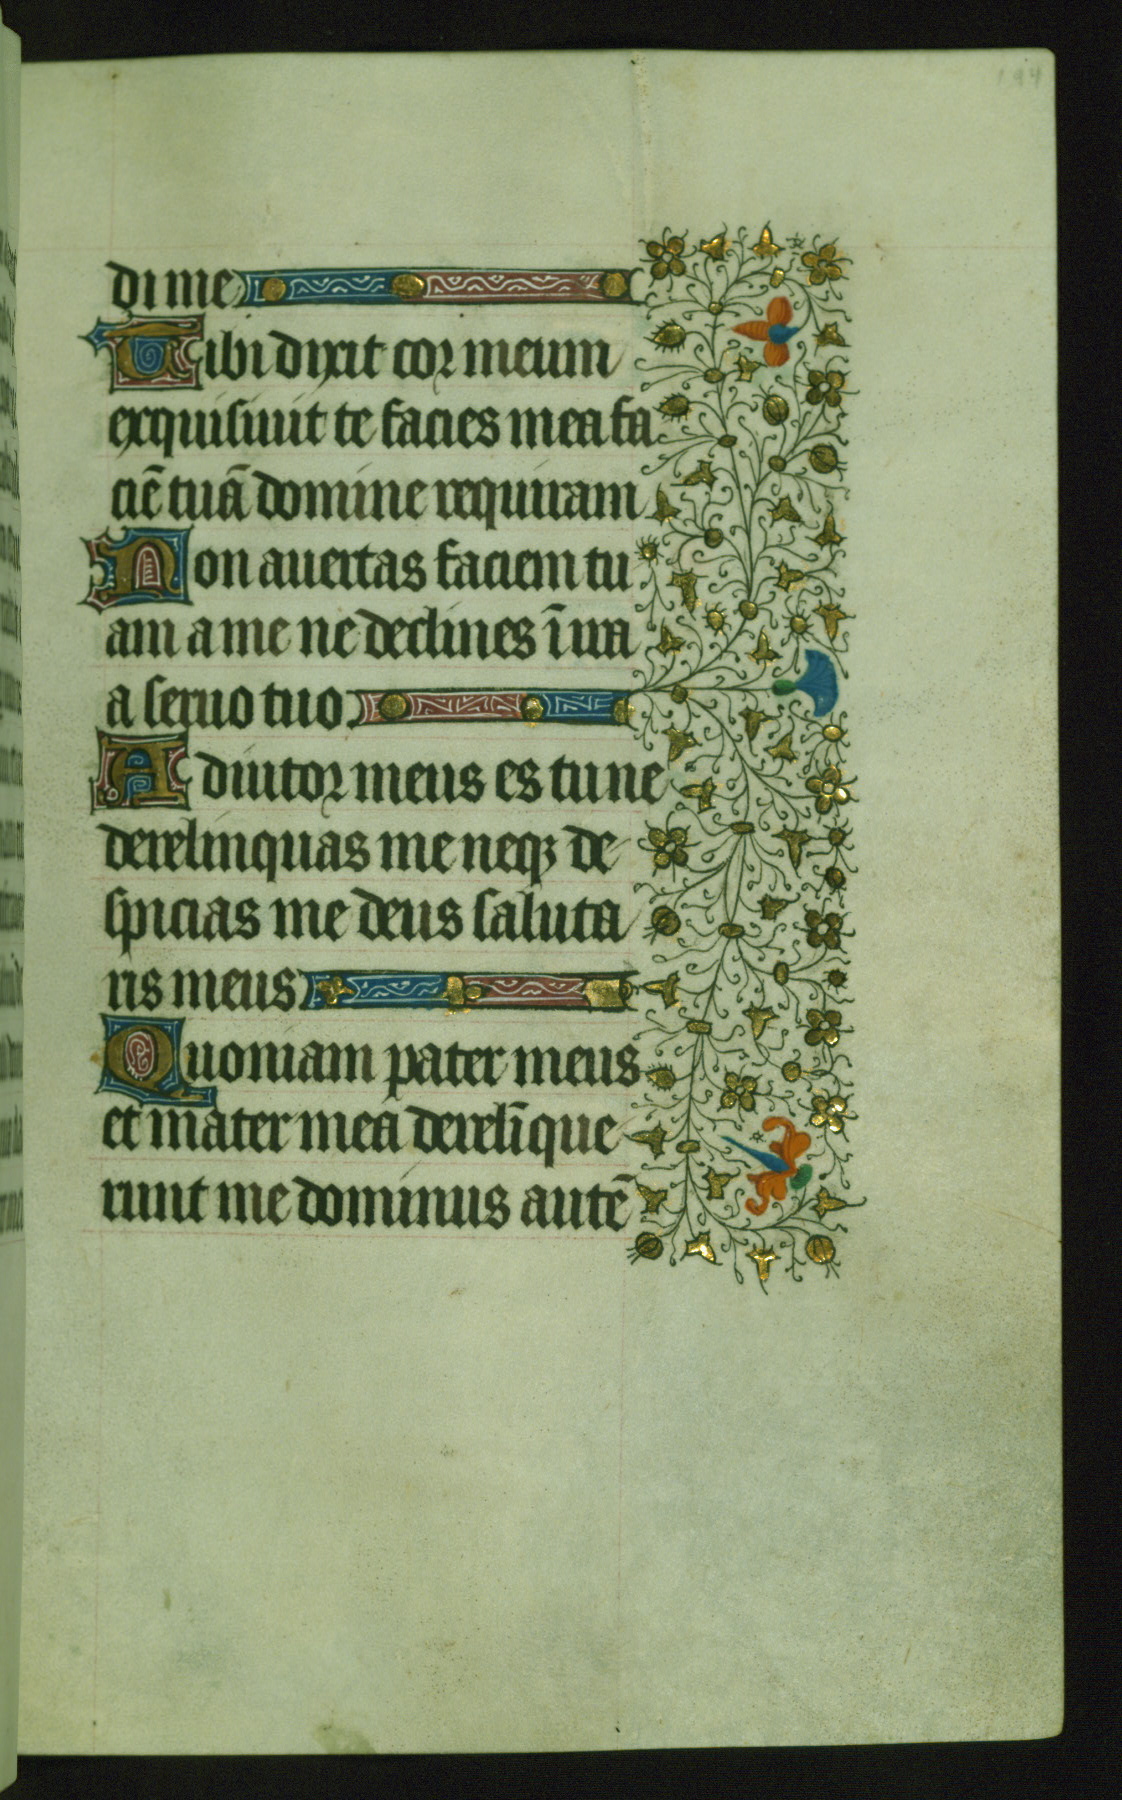 194
di me
Tibi dixit cor meum
exquisiuit te facies mea fa
ciē tuā domine requiram
Non auertas faciem tu
am a me ne declines ī ira
a seruo tuo
Adiutor meus es tu ne
derelinquas me neqꝫ de
spicias me deus saluta
ris meus
Quoniam pater meus
et mater mea derelīque
runt me dominus autē